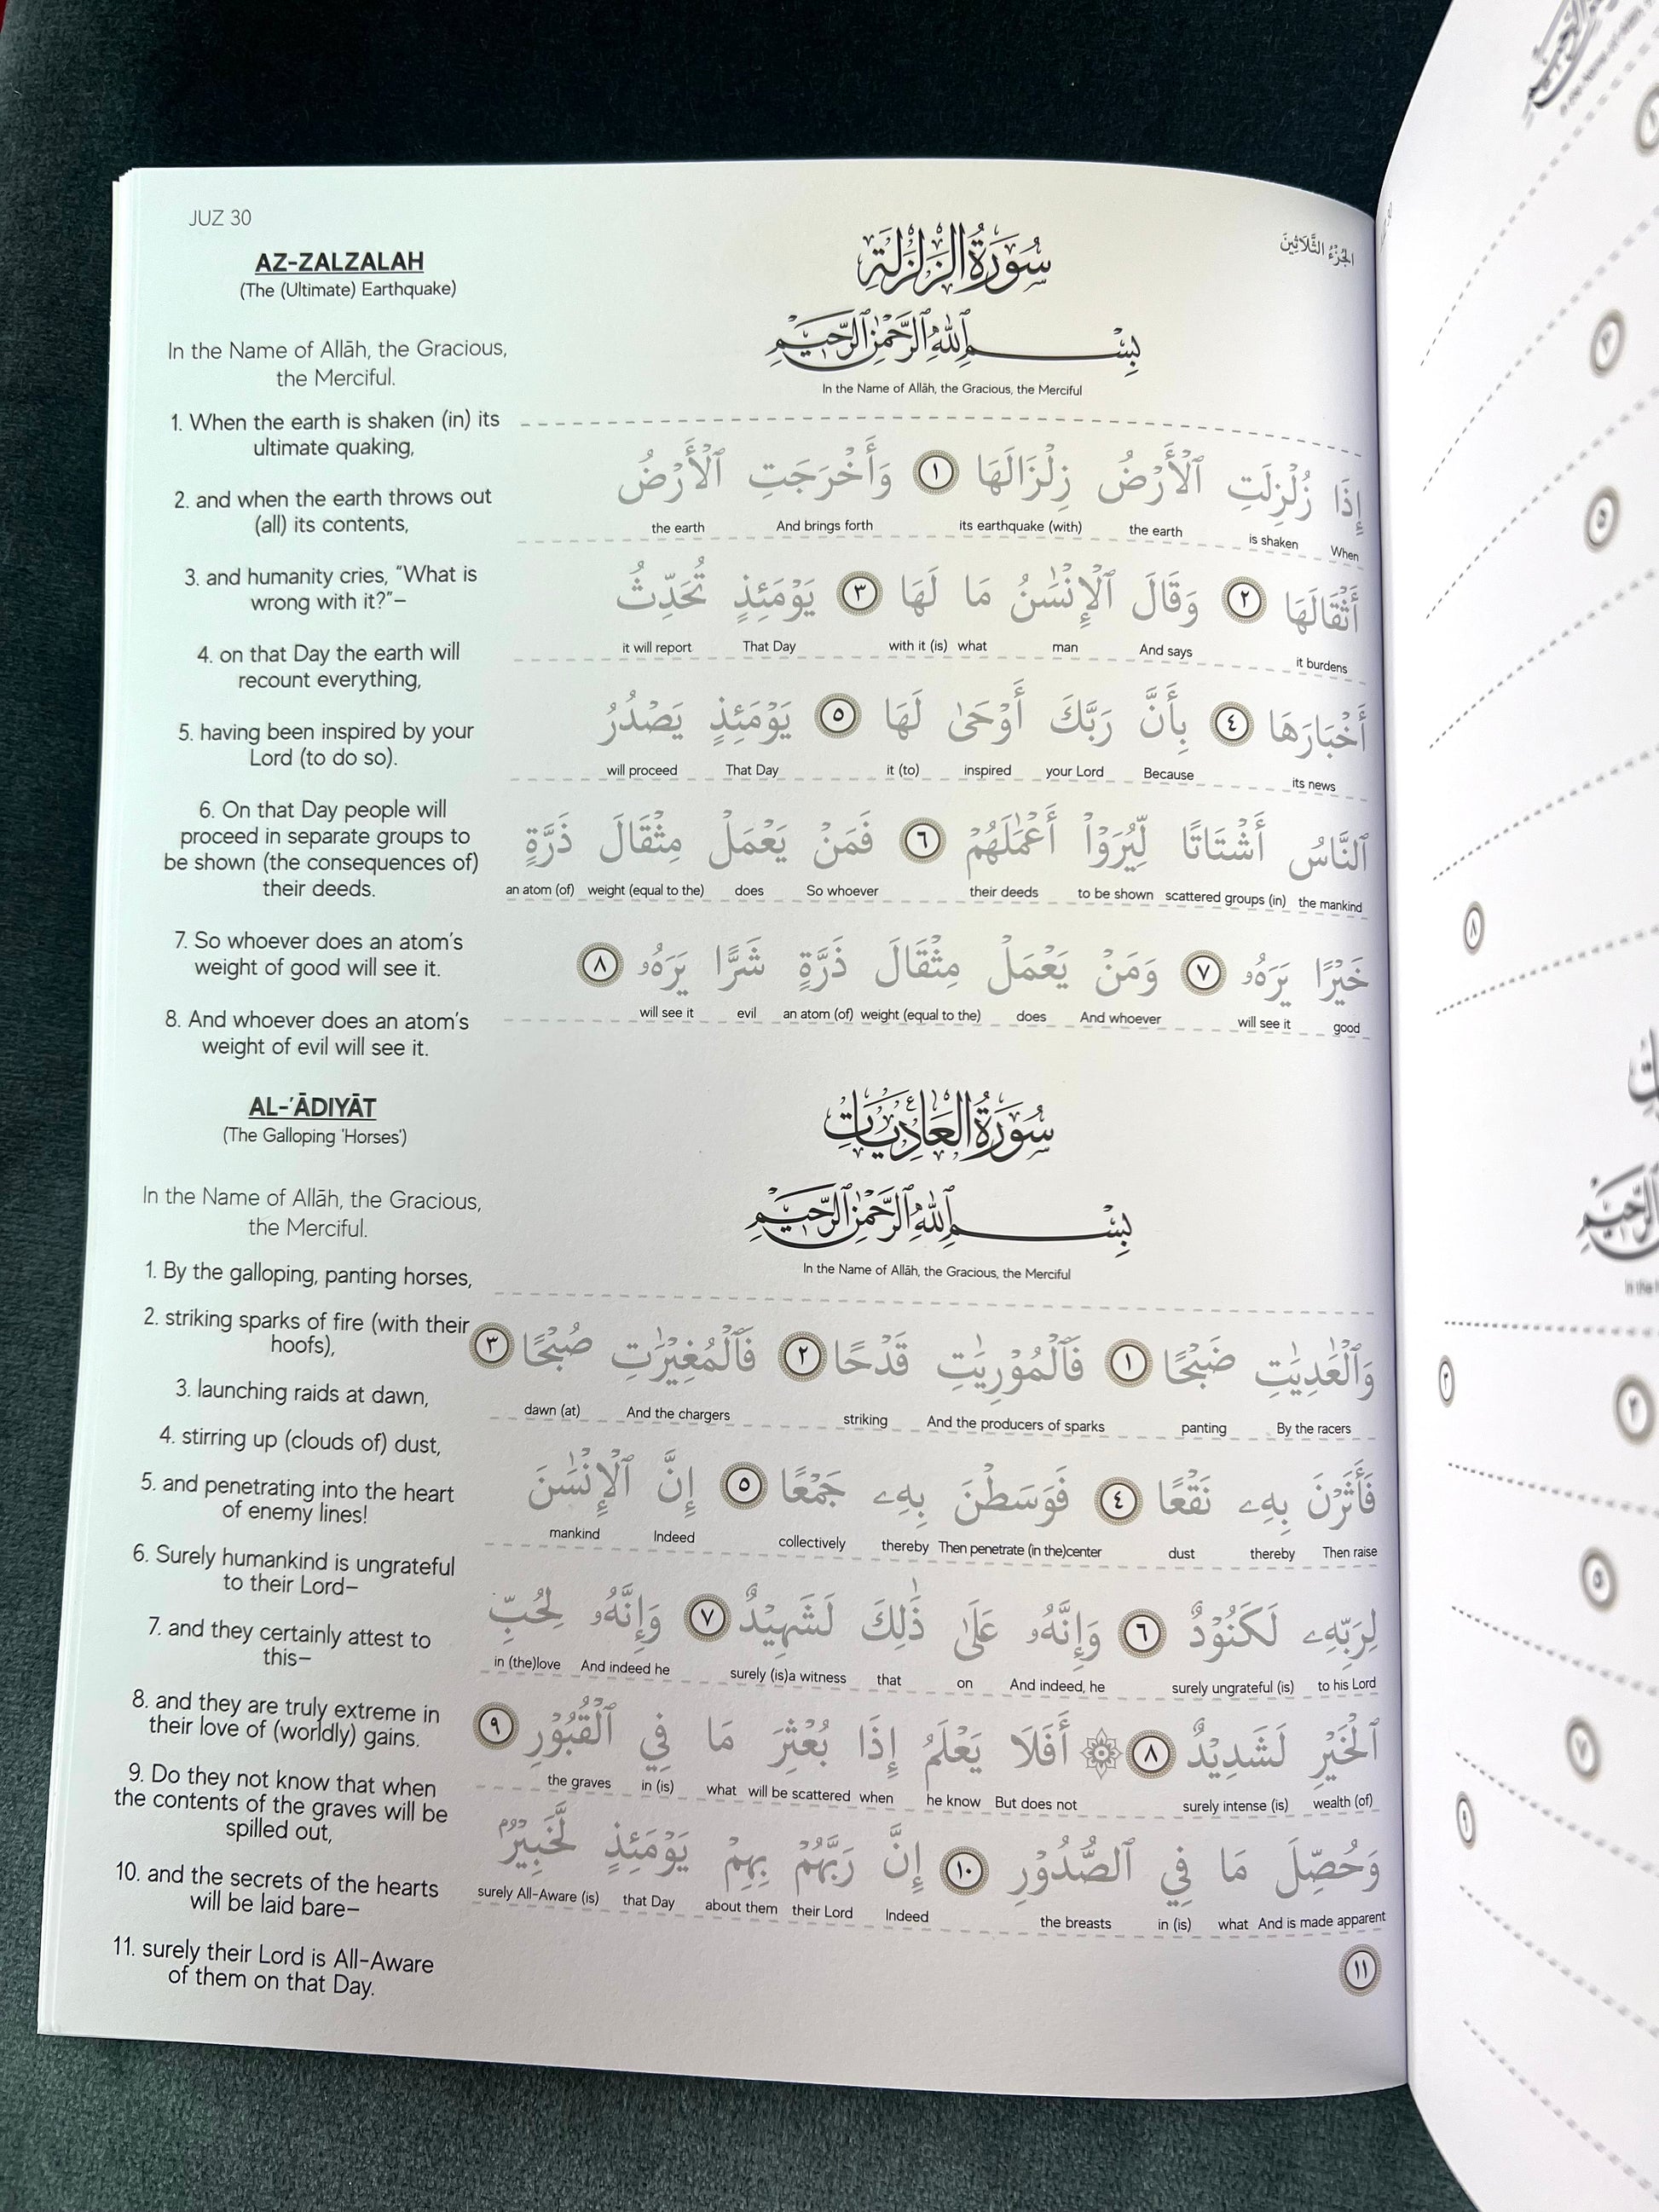 JUZ 30
الجُزْءُ الثَّلَاثِينَ
AZ-ZALZALAH
(The (Ultimate) Earthquake)
In the Name of Allāh, the Gracious,
the Merciful.
1. When the earth is shaken (in) its
ultimate quaking,
2. and when the earth throws out
(all) its contents,
3. and humanity cries, “What is
wrong with it?”–
4. on that Day the earth will
recount everything,
5. having been inspired by your
Lord (to do so).
6. On that Day people will
proceed in separate groups to
be shown (the consequences of)
their deeds.
7. So whoever does an atom’s
weight of good will see it.
8. And whoever does an atom’s
weight of evil will see it.
سُورَةُ الزَّلْزَلَةِ
بِسْمِ اللَّهِ الرَّحْمَٰنِ الرَّحِيمِ
In the Name of Allāh, the Gracious, the Merciful
إِذَا زُلْزِلَتِ ٱلْأَرْضُ زِلْزَالَهَا ١ وَأَخْرَجَتِ ٱلْأَرْضُ
the earth And brings forth its earthquake (with) the earth is shaken When
أَثْقَالَهَا ٢ وَقَالَ ٱلْإِنْسَٰنُ مَا لَهَا ٣ يَوْمَئِذٍ تُحَدِّثُ
it will report That Day with it (is) what man And says it burdens
أَخْبَارَهَا ٤ بِأَنَّ رَبَّكَ أَوْحَىٰ لَهَا ٥ يَوْمَئِذٍ يَصْدُرُ
will proceed That Day it (to) inspired your Lord Because its news
ٱلنَّاسُ أَشْتَاتًا لِّيُرَوْا۟ أَعْمَٰلَهُمْ ٦ فَمَنْ يَعْمَلْ مِثْقَالَ ذَرَّةٍ
an atom (of) weight (equal to the) does So whoever their deeds to be shown scattered groups (in) the mankind
خَيْرًا يَرَهُۥ ٧ وَمَنْ يَعْمَلْ مِثْقَالَ ذَرَّةٍ شَرًّا يَرَهُۥ ٨
will see it evil an atom (of) weight (equal to the) does And whoever will see it good
AL-‘ĀDIYĀT
(The Galloping ‘Horses’)
In the Name of Allāh, the Gracious,
the Merciful.
1. By the galloping, panting horses,
2. striking sparks of fire (with their
hoofs),
3. launching raids at dawn,
4. stirring up (clouds of) dust,
5. and penetrating into the heart
of enemy lines!
6. Surely humankind is ungrateful
to their Lord–
7. and they certainly attest to
this–
8. and they are truly extreme in
their love of (worldly) gains.
9. Do they not know that when
the contents of the graves will be
spilled out,
10. and the secrets of the hearts
will be laid bare–
11. surely their Lord is All-Aware
of them on that Day.
سُورَةُ العَادِيَاتِ
بِسْمِ اللَّهِ الرَّحْمَٰنِ الرَّحِيمِ
In the Name of Allāh, the Gracious, the Merciful
وَٱلْعَٰدِيَٰتِ ضَبْحًا ١ فَٱلْمُوْرِيَٰتِ قَدْحًا ٢ فَٱلْمُغِيْرَٰتِ صُبْحًا ٣
dawn (at) And the chargers striking And the producers of sparks panting By the racers
فَأَثَرْنَ بِهِۦ نَقْعًا ٤ فَوَسَطْنَ بِهِۦ جَمْعًا ٥ إِنَّ ٱلْإِنْسَٰنَ
mankind Indeed collectively thereby Then penetrate (in the)center dust thereby Then raise
لِرَبِّهِۦ لَكَنُوْدٌ ٦ وَإِنَّهُۥ عَلَىٰ ذَٰلِكَ لَشَهِيْدٌ ٧ وَإِنَّهُۥ لِحُبِّ
in (the)love And indeed he surely (is)a witness that on And indeed, he surely ungrateful (is) to his Lord
ٱلْخَيْرِ لَشَدِيْدٌ ٨ أَفَلَا يَعْلَمُ إِذَا بُعْثِرَ مَا فِي ٱلْقُبُوْرِ ٩
the graves in (is) what will be scattered when he know But does not surely intense (is) wealth (of)
وَحُصِّلَ مَا فِي ٱلصُّدُوْرِ ١٠ إِنَّ رَبَّهُمْ بِهِمْ يَوْمَئِذٍ لَّخَبِيْرٌ
surely All-Aware (is) that Day about them their Lord Indeed the breasts in (is) what And is made apparent
١١